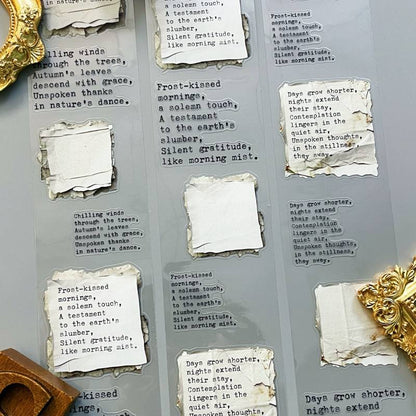 Chilling winds
through the trees,
Autumn's leaves
descend with grace,
Unspoken thanks
in nature's dance.
Chilling winds
through the trees,
Autumn's leaves
descend with grace,
Unspoken thanks
in nature's dance.
Frost-kissed
mornings,
a solemn touch,
A testament
to the earth's
slumber,
Silent gratitude,
like morning mist.
Frost-kissed
mornings,
a solemn touch,
A testament
to the earth's
slumber,
Silent gratitude,
like morning mist.
Frost-kissed
mornings,
a solemn touch,
A testament
to the earth's
slumber,
Silent gratitude,
like morning mist.
Frost-kissed
mornings,
a solemn touch,
A testament
to the earth's
slumber,
Silent gratitude,
like morning mist.
Days grow shorter,
nights extend
their stay,
Contemplation
lingers in the
quiet air,
Unspoken thoughts,
Frost-kissed
mornings,
a solemn touch,
A testament
to the earth's
slumber,
Silent gratitude,
like morning mist.
Days grow shorter,
nights extend
their stay,
Contemplation
lingers in the
quiet air,
Unspoken thoughts,
in the stillness,
they sway.
Days grow shorter,
nights extend
their stay,
Contemplation
lingers in the
quiet air,
Unspoken thoughts,
in the stillness,
they sway.
Days grow shorter,
nights extend